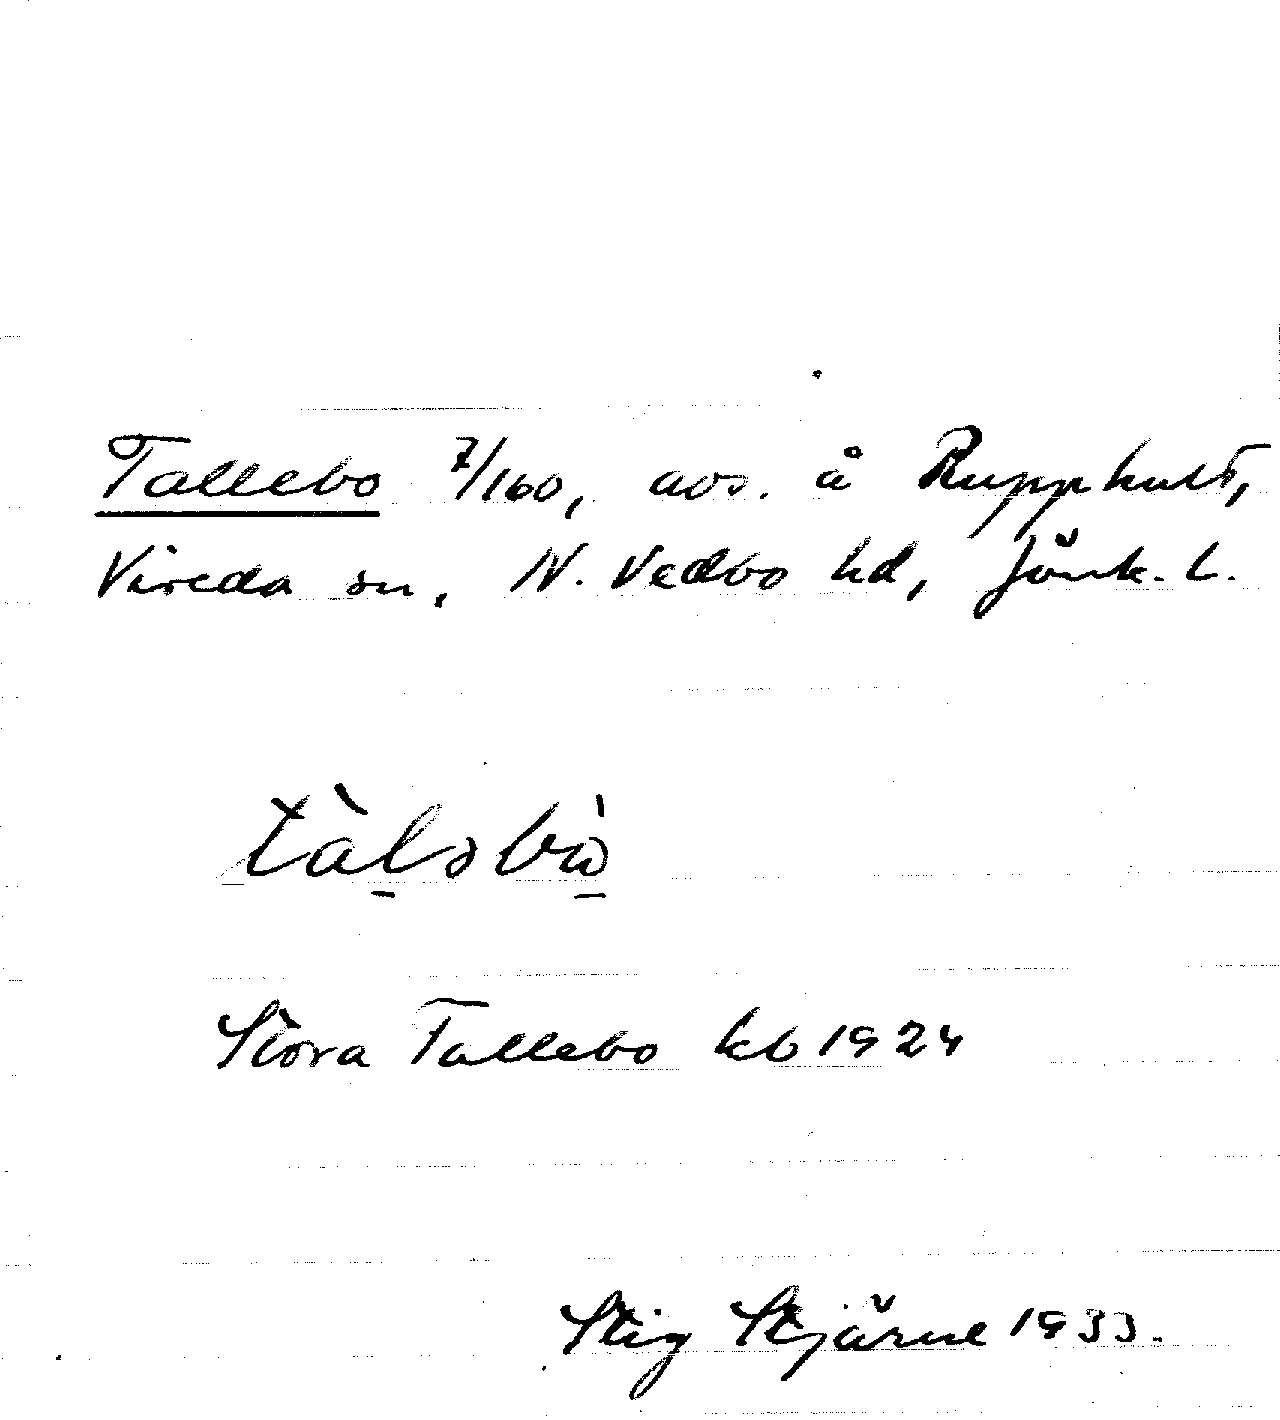 Tallebo 7/160, avs. å Rupphult,
Vireda sn, N. Vedbo hd, Jönk. l.
tàl̠əbὼ̠
Stora Tallebo kb 1924
Stig Stjärne 1933.